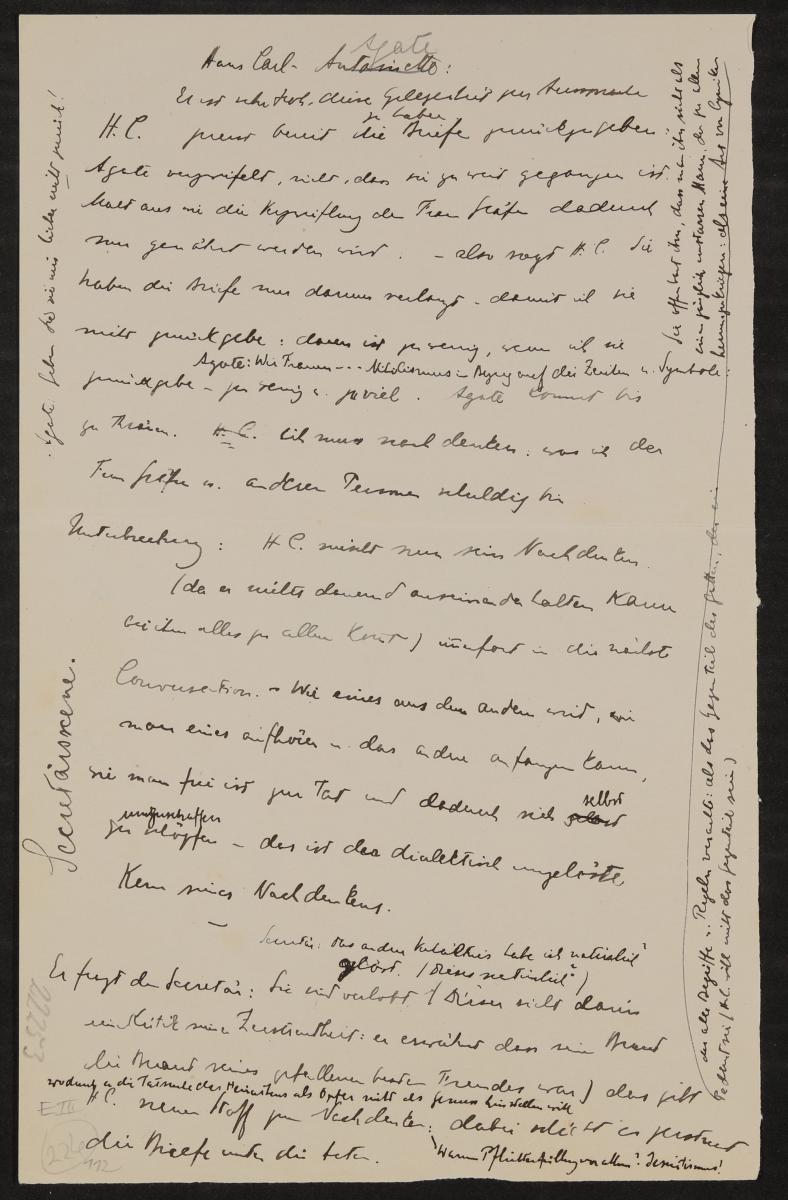 Agate
Hans Carl - Antoinette:
Er ist sehr froh, diese Gelegenheit zur Aussprache
zu haben
H.C. zuerst bereit die Briefe zurückzugeben:
Agate verzweifelt, nicht, dass sie zu weit gegangen ist.
Malt aus wie die Verzweiflung der Frau Gräfin dadurch
nur genährt werden wird. – also sagt H.C. Sie
haben die Briefe nur darum verlangt – damit ich sie
nicht zurückgebe: daran ist zu wenig, wenn ich sie
Agate: Wir Frauen - - - Nihilismus in Bezug auf die Zeichen u. Symbole.
zurückgebe – zu wenig u. zuviel. Agate kommt bis
zu Thränen. H.C. Ich muss nachdenken: was ich der
Frau Gräfin u. anderen Personen schuldig bin
Unterbrechung: H.C. mischt nun sein Nachdenken
(da er nichts dauernd auseinanderhalten kann
bei ihm alles zu allem kommt) sofort in die nächste
Conversation. – Wie eines aus dem andern wird, wie
man eines aufhören u. das andre anfangen kann,
wie man frei ist zur Tat und dadurch sich selbst
umzuschaffen
zu schöpfen – das ist der dialektisch ungelöste
Kern seines Nachdenkens.
Secretär: Das andere Verhältnis habe ich natürlich
gelöst. (Dieses "natürlich")
Er fragt den Secretär: Sie sind verlobt? (Dieser sieht darin
eine Kritik seiner Zerstreutheit: er erwähnt dass seine Braut
die Braut seines gefallenen besten Freundes war) dies gibt
wodurch er die Tatsache des Heiratens als Opfer nicht als Genuss hinstellen will
H.C. neuen Stoff zum Nachdenken: dabei schiebt er zerstreut
die Briefe unter die Akten.
Warum Pflichterfüllung vor allem? Jesuitismus!
Agate: Geben Sie sie mir lieber nicht zurück!
Secretärscene.
Sie offenbart ihm, dass man ihn nicht als
einen gänzlich Mann, der zu allem
herumzukriegen: als eine Art von Cyniker
der alle Begriffe u. Regeln verachte: als das Gegenteil des Gatten, der ein
Pedant sei (H.C. will nicht das Gegenteil sein)
E III
112